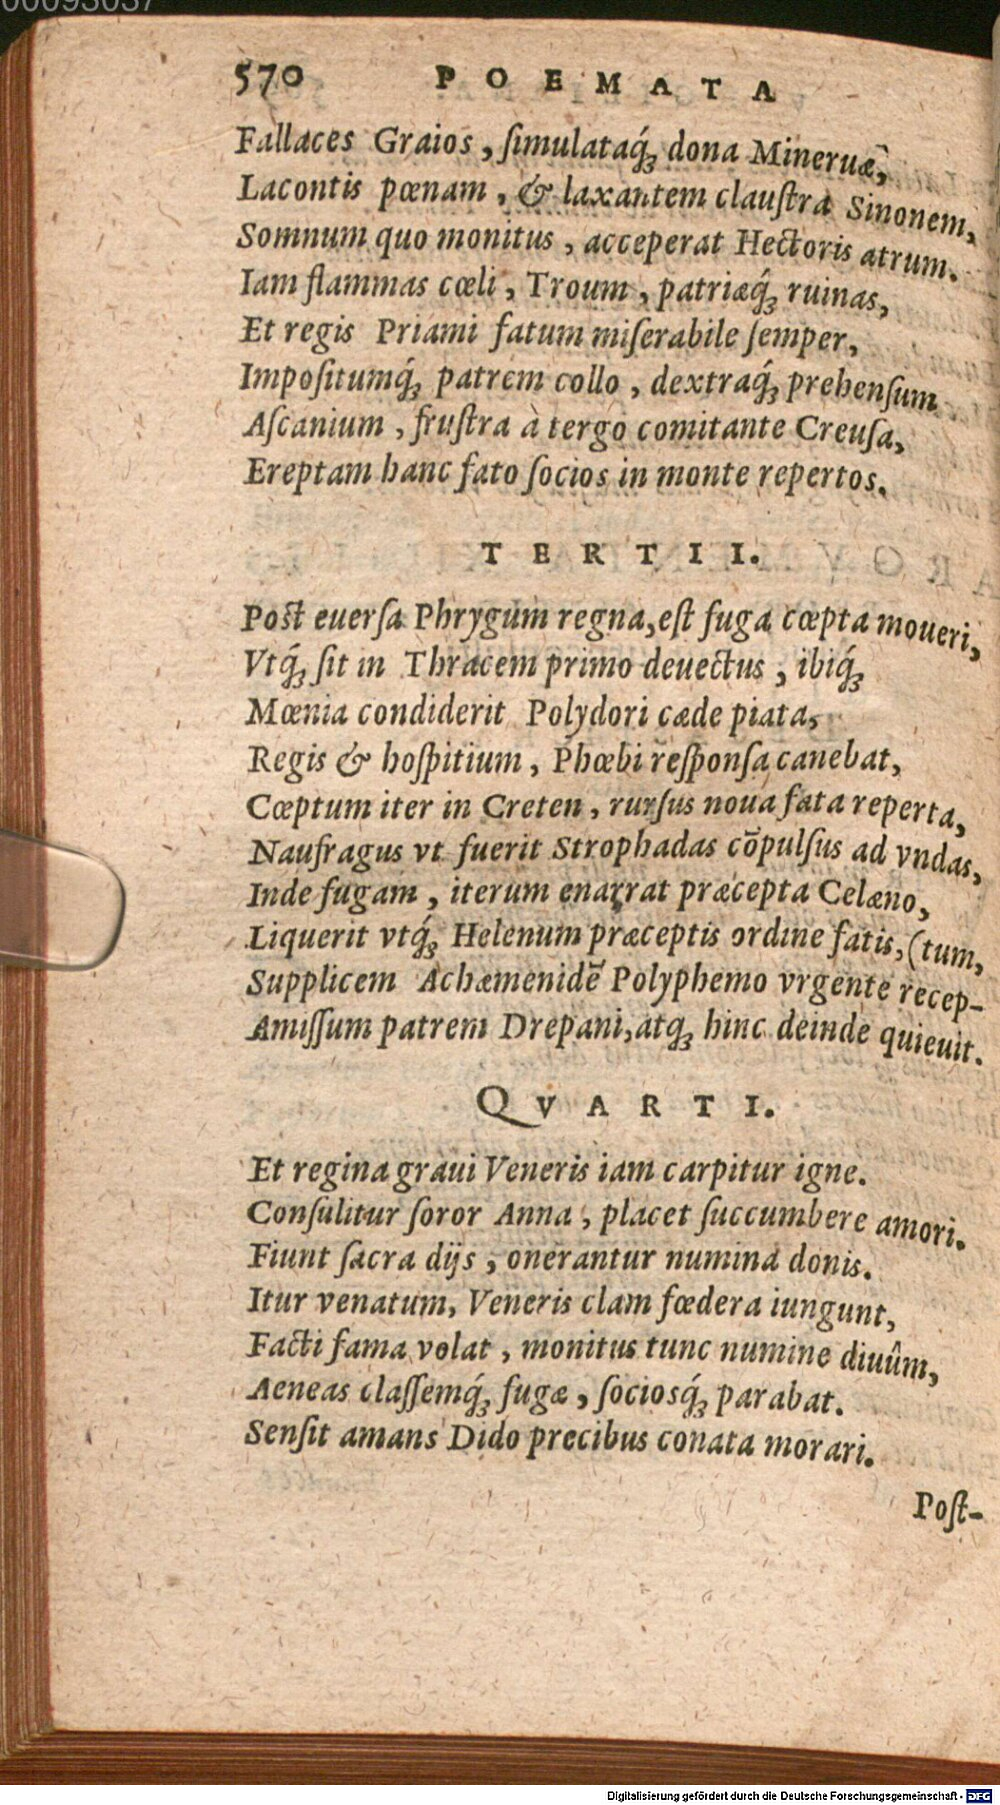 00093037
570 POEMATA
Fallaces Graios, ſimulataq́; dona Mineruæ,
Lacontis pœnam, & laxantem clauſtra Sinonem,
Somnum quo monitus, acceperat Hectoris atrum.
Iam flammas cœli, Troum, patriæq́; ruinas,
Et regis Priami fatum miſerabile ſemper,
Impoſitumq́; patrem collo, dextraq́; prehenſum
Aſcanium, fruſtra à tergo comitante Creuſa,
Ereptam hanc fato ſocios in monte repertos.
TERTII.
Poſt euerſa Phrygum regna, eſt fuga cœpta moueri,
Vtq́; ſit in Thracem primo deuectus, ibiq́;
Mœnia condiderit Polydori cæde piata,
Regis & hoſpitium, Phœbi reſponſa canebat,
Cœptum iter in Creten, rurſus noua fata reperta,
Naufragus vt fuerit Strophadas cōpulſus ad vndas,
Inde fugam, iterum enarrat præcepta Celæno,
Liquerit vtq́; Helenum præceptis ordine fatis, (tum,
Supplicem Achæmenidē Polyphemo vrgente recep-
Amiſſum patrem Drepani, atq; hinc deinde quieuit.
QVARTI.
Et regina graui Veneris iam carpitur igne.
Conſulitur ſoror Anna, placet ſuccumbere amori.
Fiunt ſacra dijs, onerantur numina donis.
Itur venatum, Veneris clam fœdera iungunt,
Facti fama volat, monitus tunc numine diuûm,
Aeneas claſſemq́; fugæ, ſociosq́; parabat.
Senſit amans Dido precibus conata morari.
Poſt-
Digitalisierung gefördert durch die Deutsche Forschungsgemeinschaft - DFG